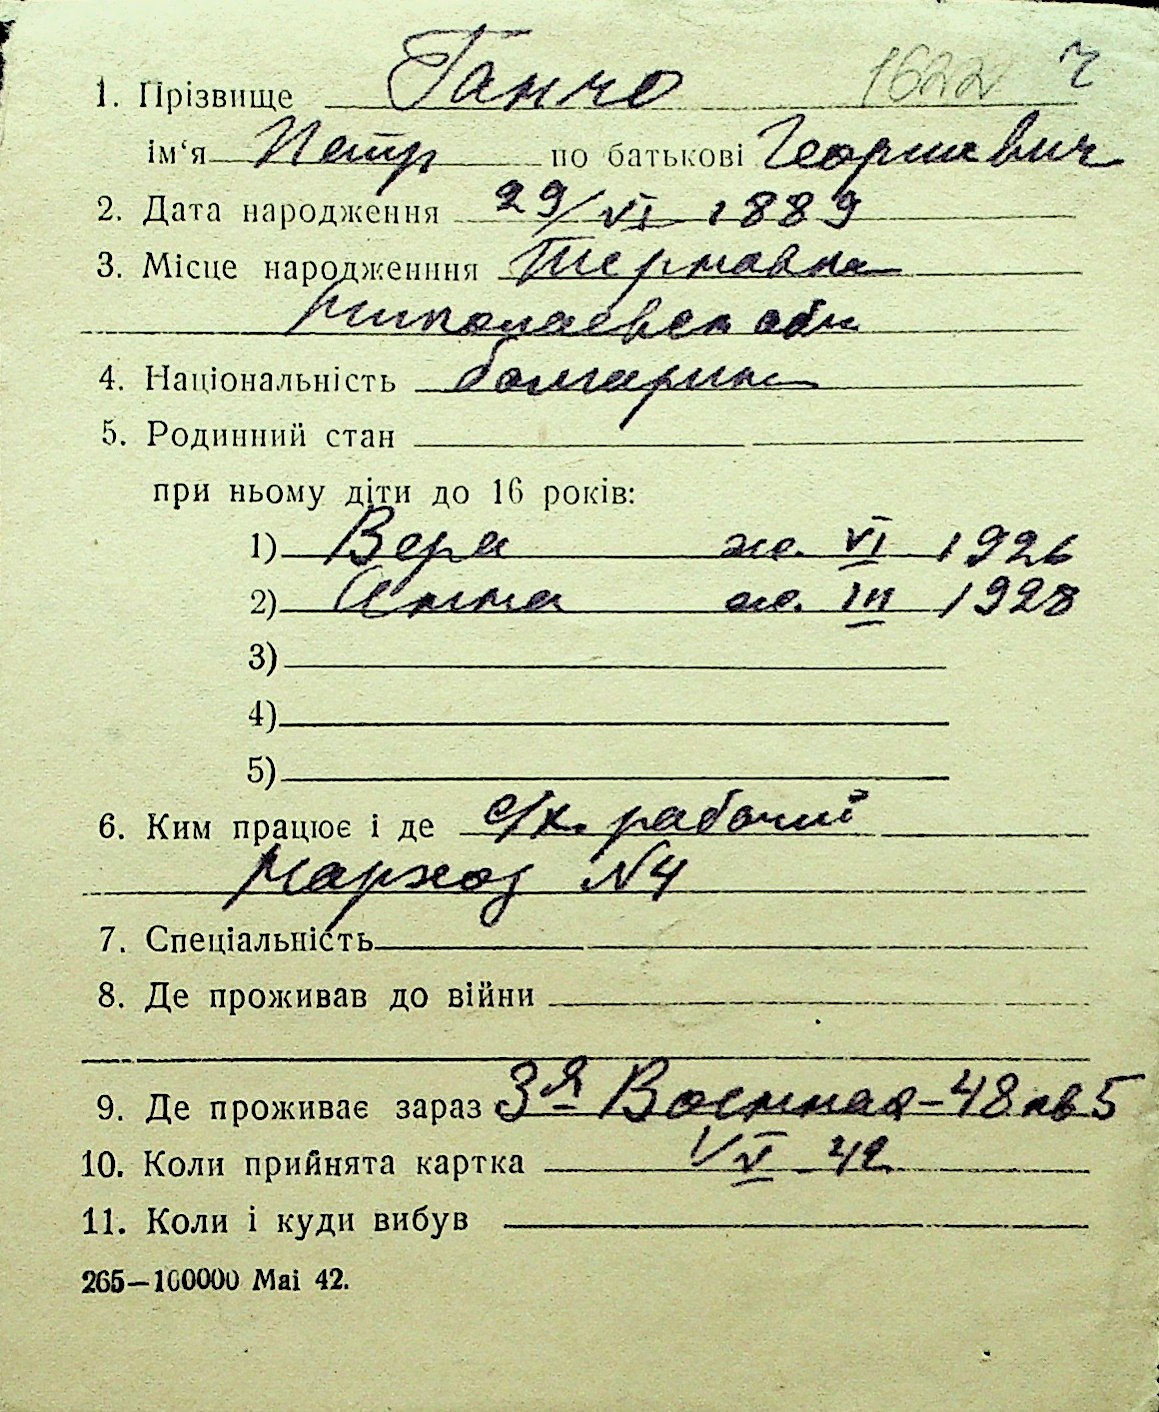 1. Прізвище Ганчо 1622 ч
ім‘я Петр по батькові Георгиевич
2. Дата народження 29/VI 1889
3. Місце народженння Терновка
Николаевск обл
4. Національність болгарин
5. Родинний стан
при ньому діти до 16 років:
1) Вера ж. VI 1926
2) Анна ж. III 1928
3)
4)
5)
6. Ким працює і де с/х. рабочий
Мархоз N4
7. Спеціальність
8. Де проживав до війни
9. Де проживає зараз 3я Военная-48 кв 5
10. Коли прийнята картка 1/V 42
11. Коли і куди вибув
265—100000 Mai 42.